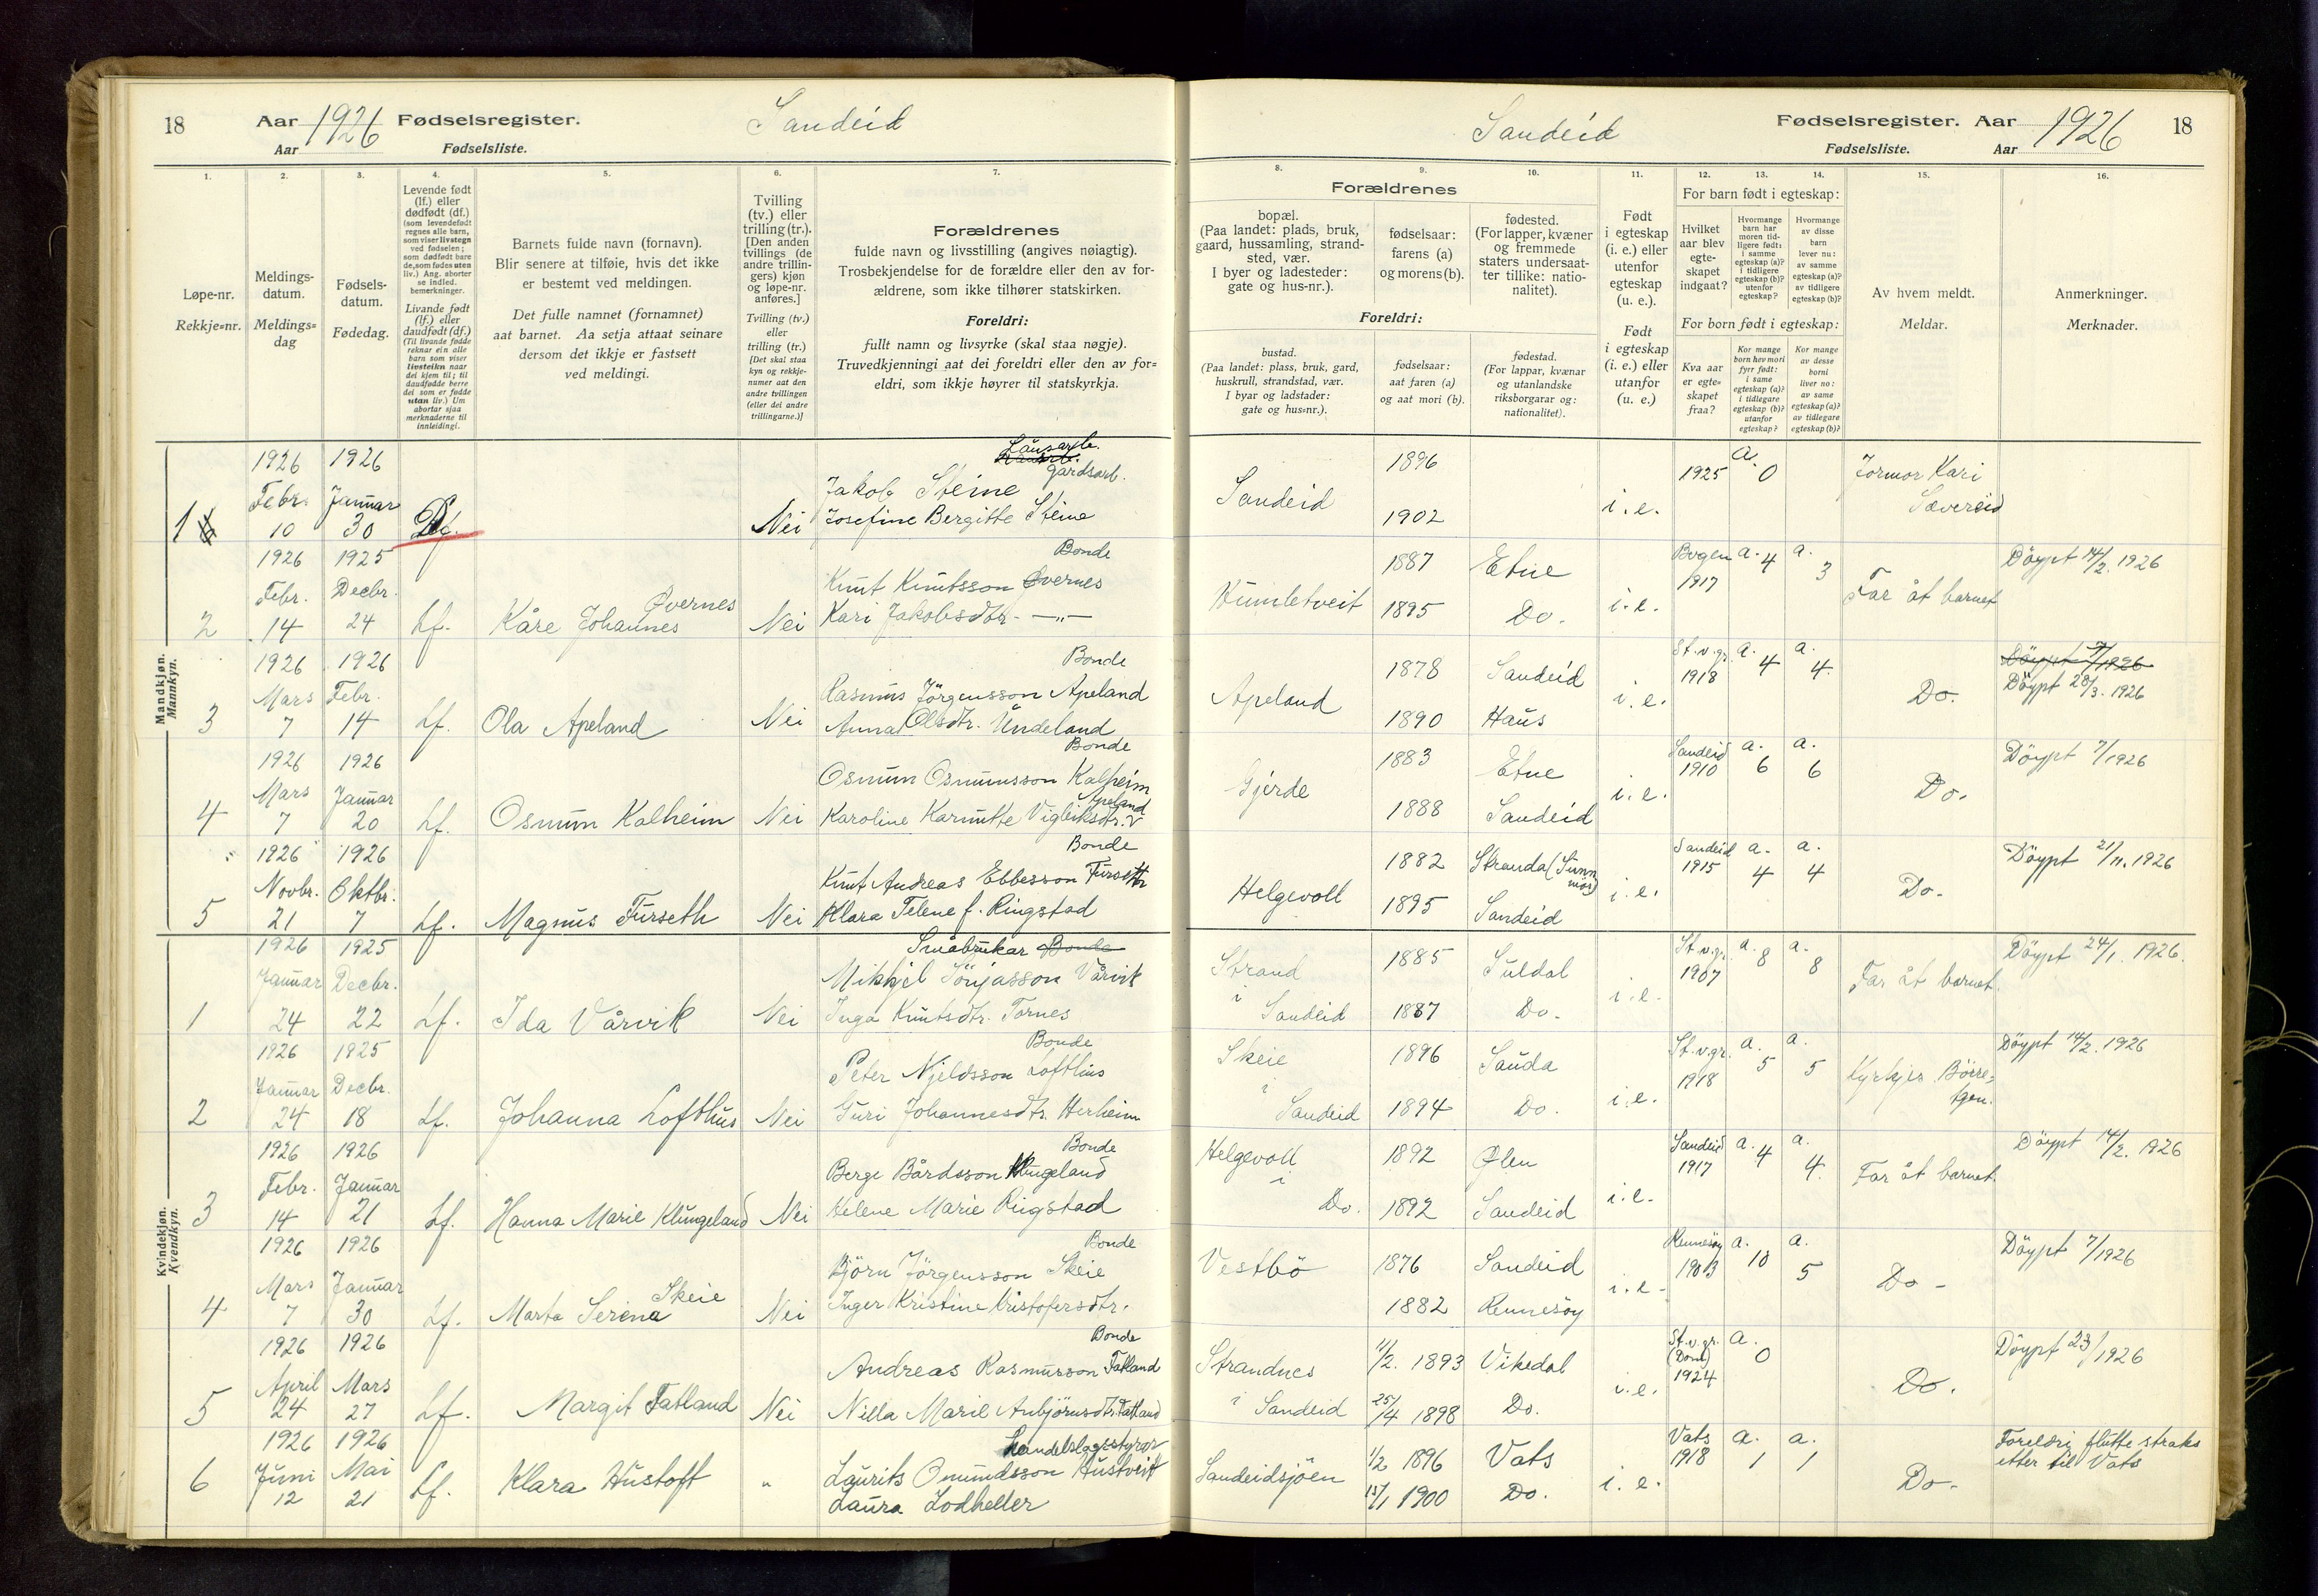 18 Aar 1926 Fødselsregister. Sandeid
Aar Fødselsliste.
1. 2. 3. 4. 5. 6. 7.
Løpe-nr.
Rekkje=nr.
Meldings-
datum.
Meldings=
dag
Fødsels-
datum.
Fødedag.
Levende født
(lf.) eller
dødfødt (df.)
(som levendefødt
regnes alle barn,
som viser livstegn
ved fødselen;
som dødfødt bare
de, som fødes uten
liv.) Ang. aborter
se indled.
bemerkninger.
Livande født
(lf.) eller
daudfødt (df.)
(Til livande fødde
reknar ein alle
barn som viser
livsteikn naar
dei kjem til; til
daudfødde berre
dei som er fødde
utan liv.) Um
abortar sjaa
merknaderne til
innleidingi.
Barnets fulde navn (fornavn).
Blir senere at tilføie, hvis det ikke
er bestemt ved meldingen.
Det fulle namnet (fornamnet)
aat barnet. Aa setja attaat seinare
dersom det ikkje er fastsett
ved meldingi.
Tvilling
(tv.) eller
trilling (tr.).
[Den anden
tvillings (de
andre trillin-
gers) kjøn
og løpe-nr.
anføres.]
Tvilling (tv.)
eller
trilling (tr.)
[Det skal staa
kyn og rekkje-
numer aat den
andre tvillingen
(eller dei andre
trillingarne.)]
Forældrenes
fulde navn og livsstilling (angives nøiagtig).
Trosbekjendelse for de forældre eller den av for-
ældrene, som ikke tilhører statskirken.
Foreldri:
fullt namn og livsyrke (skal staa nøgje).
Truvedkjenningi aat dei foreldri eller den av for=
eldri, som ikkje høyrer til statskyrkja.
Mandkjøn.
Mannkyn.
1926 1926
Febr. Januar gardsarb.
Jakob Steine
1 10 30 Df. Nei Josefine Bergitte Steine
1926 1925 Bonde
Febr. Decbr. Knut Knutsson Øvernes
Øvernes
2 14 24 Lf. Kåre Johannes Nei Kari Jakobsdtr. —"—
1926 1926 Bonde
Mars Febr. Rasmus Jörgensson Apeland
3 7 14 Lf. Ola Apeland Nei Anna Olsdtr. Undeland
1926 1926 Bonde
Mars Januar Osmun Osmunsson Kalheim
Apeland
4 7 20 Lf. Osmun Kalheim Nei Karoline Karnutte Vigleiksdtr.
1926 1926 Bonde
Novbr. Oktbr. Knut Andreas Ebbesson Furseth
5 21 7 Lf. Magnus Furseth Nei Klara Telene f. Ringstad
Kvindekjøn.
Kvendkyn.
1926 1925 Småbrukar Bonde
Januar Decbr. Mikkjel Sönjasson Vårvik
1 24 22 Lf. Ida Vårvik Nei Inga Knutsdtr. Tornes
1926 1925 Bonde
Januar Decbr. Peter Njeldsson Lofthus
2 24 18 Lf. Johanna Lofthus Nei Guri Johannesdtr. Herheim
1926 1926 Bonde
Febr. Januar Berge Bårdsson Klungeland
3 14 21 Lf. Hanna Marie Klungeland Nei Helene Marie Ringstad
1926 1926 Bonde
Mars Januar Björn Jörgensson Skeie
Skeie
4 7 30 Lf. Marta Serena Nei Inger Kristine Kristofersdtr.
1926 1926 Bonde
Andreas Rasmusson Fatland
April Mars
5 24 27 Lf. Margit Fatland Nei Nilla Marie Anbjörnsdtr. Fatland
1926 1926 Handelslagsstyrar
Juni Mai Laurits Omundsson Hustveit
6 12 21 Lf. Klara Hustoft " Laura Lodheller
Sandeid Fødselsregister. Aar 1926 18
Fødselsliste. Aar
8. 9. 10. 11. 12. 13. 14. 15. 16.
Forældrenes
bopæl.
(Paa landet: plads, bruk,
gaard, hussamling, strand-
sted, vær.
I byer og ladesteder:
gate og hus-nr.).
fødselsaar:
farens (a)
og morens (b).
fødested.
(For lapper, kvæner
og fremmede
staters undersaat-
ter tillike: natio-
nalitet).
Foreldri:
bustad.
(Paa landet: plass, bruk, gard,
huskrull, strandstad, vær.
I byar og ladstader:
gate og hus=nr.).
fødselsaar:
aat faren (a)
og aat mori (b).
fødestad.
(For lappar, kvænar
og utanlandske
riksborgarar og:
nationalitet).
Født
i egteskap
(i. e.) eller
utenfor
egteskap
(u. e.).
Født
i egteskap
(i. e.) eller
utanfor
(u. e.)
For barn født i egteskap:
Hvilket
aar blev
egte-
skapet
indgaat?
Hvormange
barn har
moren tid-
ligere født:
i samme
egteskap (a)?
i tidligere
egteskap (b)?
utenfor
egteskap?
Hvormange
av disse
barn
lever nu:
av samme
egteskap (a)?
av tidligere
egteskap (b)?
For born født i egteskap:
Kva aar
er egte=
skapet
fraa?
Kor mange
born hev mori
fyrr født:
i same
egteskap (a)?
i tidlegare
egteskap (b)?
utanfor
egteskap?
Kor mange
av desse
borni
liver no:
av same
egteskap (a)?
av tidlegare
egteskap (b)?
Av hvem meldt.
Meldar.
Anmerkninger.
Merknader.
1896 1925 a. 0 Jormor Kari
Sandeid i. e. Sævereid
1902
1887 Etne Bergen a. 4 a. 3 Döypt 14/2. 1926
Humletveit i. e. 1917 Far åt barnet
1895 Do.
1878 Sandeid St.v.gr. a. 4 a. 4 Döypt 7/1926
Apeland i. e. 1918 Do. Döypt 28/3. 1926
1890 Haus
1883 Etne Sandeid a. 6 a. 6 Döypt 7/1926
Gjerde i. e. 1910 Do.
1888 Sandeid
1882 Stranda (Sunn Sandeid a. 4 a. 4 Döypt 21/11. 1926
mör)
Helgevoll i. e. 1915 Do.
1895 Sandeid
Strand 1885 Suldal St.v.gr. a. 8 a. 8 Döypt 24/1. 1926.
i i. e. 1907 Far åt barnet.
Sandeid 1887 Do.
Skeie 1896 Sauda St.v.gr. a. 5 a. 5 Döypt 14/2. 1926
i i. e. 1918 Kyrkjes. Börre=
Sandeid 1894 Do. tgen.
Helgevoll 1892 Ølen Sandeid a. 4 a. 4. Döypt 14/2. 1926
i i. e. 1917 Far åt barnet.
Do. 1892 Sandeid
Vestbö 1876 Sandeid Rennesöy a. 10 a. 5 Döypt 7/1926
i. e. 1903 Do -
1882 Rennesöy
Strandnes 11/2. 1893 Vikedal St.v.gr. a. 0 Döypt 23/1926
(Dom)
i i. e. 1924 Do.
Sandeid 25/4 1898 Do.
1/2 1896 Vats Vats a. 1 a. 1 Foreldri flutte straks
Sandeidsjöen i. e. 1918 Do. etter til Vats
15/1 1900 Do.